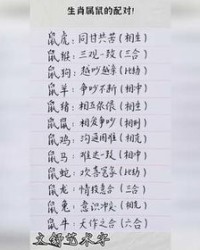 生肖属鼠的配对!
鼠虎:同甘共苦(相生)
鼠猴:三观一致(三合)
鼠狗:越吵越亲(比劫)
鼠羊:争吵不断(相冲)
鼠猪:相互依偎(相生)
鼠鼠:相爱争吵(相
鼠鸡:沟通困难(相
鼠马:难达一致(相中)
鼠蛇:欢喜冤家(比劫)
鼠龙:情投意合(三合)
鼠兔:意识冲突(相
鼠牛:天作之合(六合)
文锦艺术字